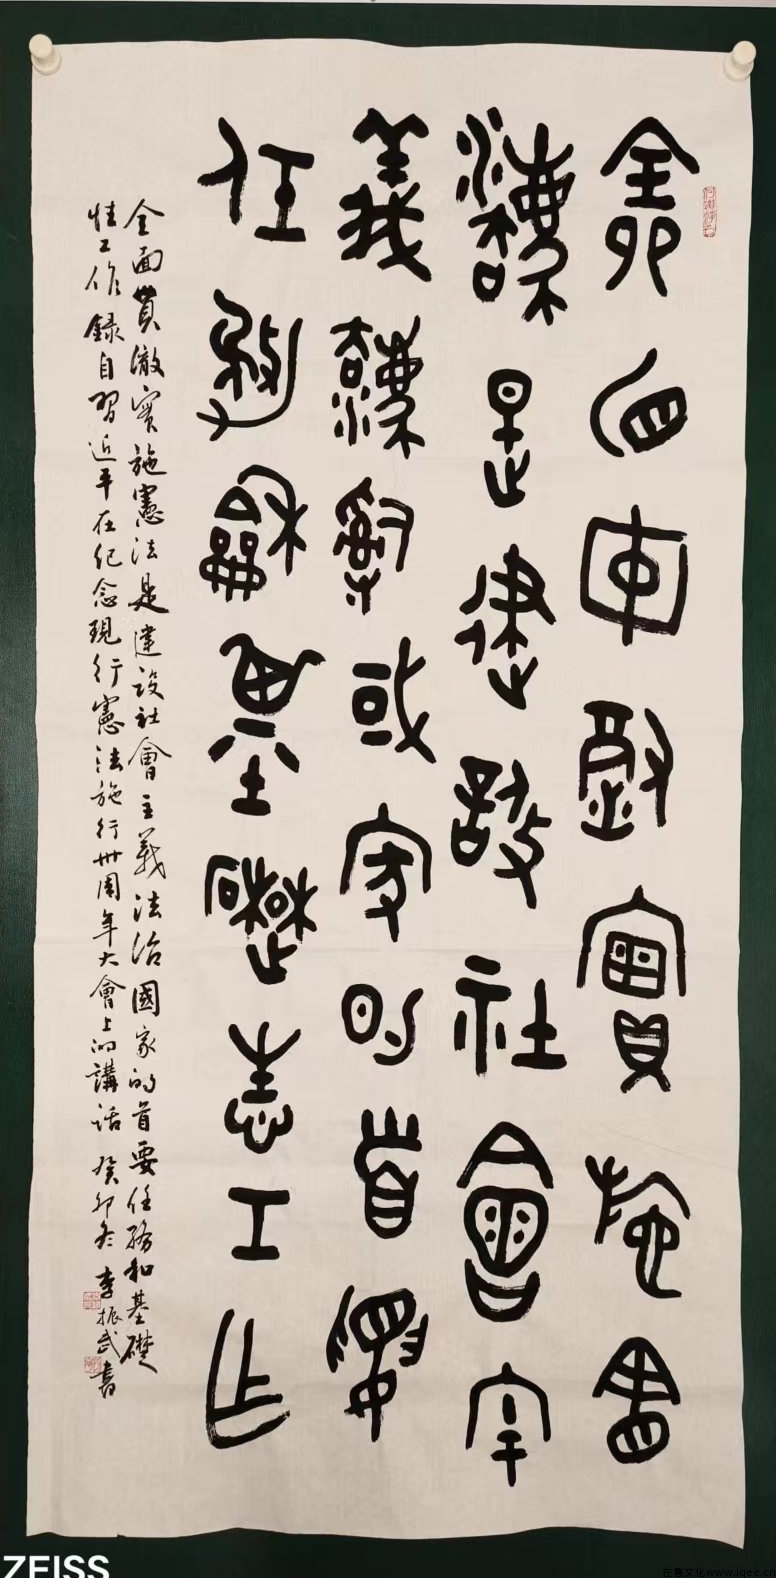 全面貫徹實施憲
法是建設社會主
義法治或家的首要
任務和基礎性工作
全面貫徹實施憲法是建設社會主義法治國家的首要任務和基礎
性工作錄自習近平在紀念現行憲法施行卅周年大會上的講話 癸卯冬 李振武書
ZEISS